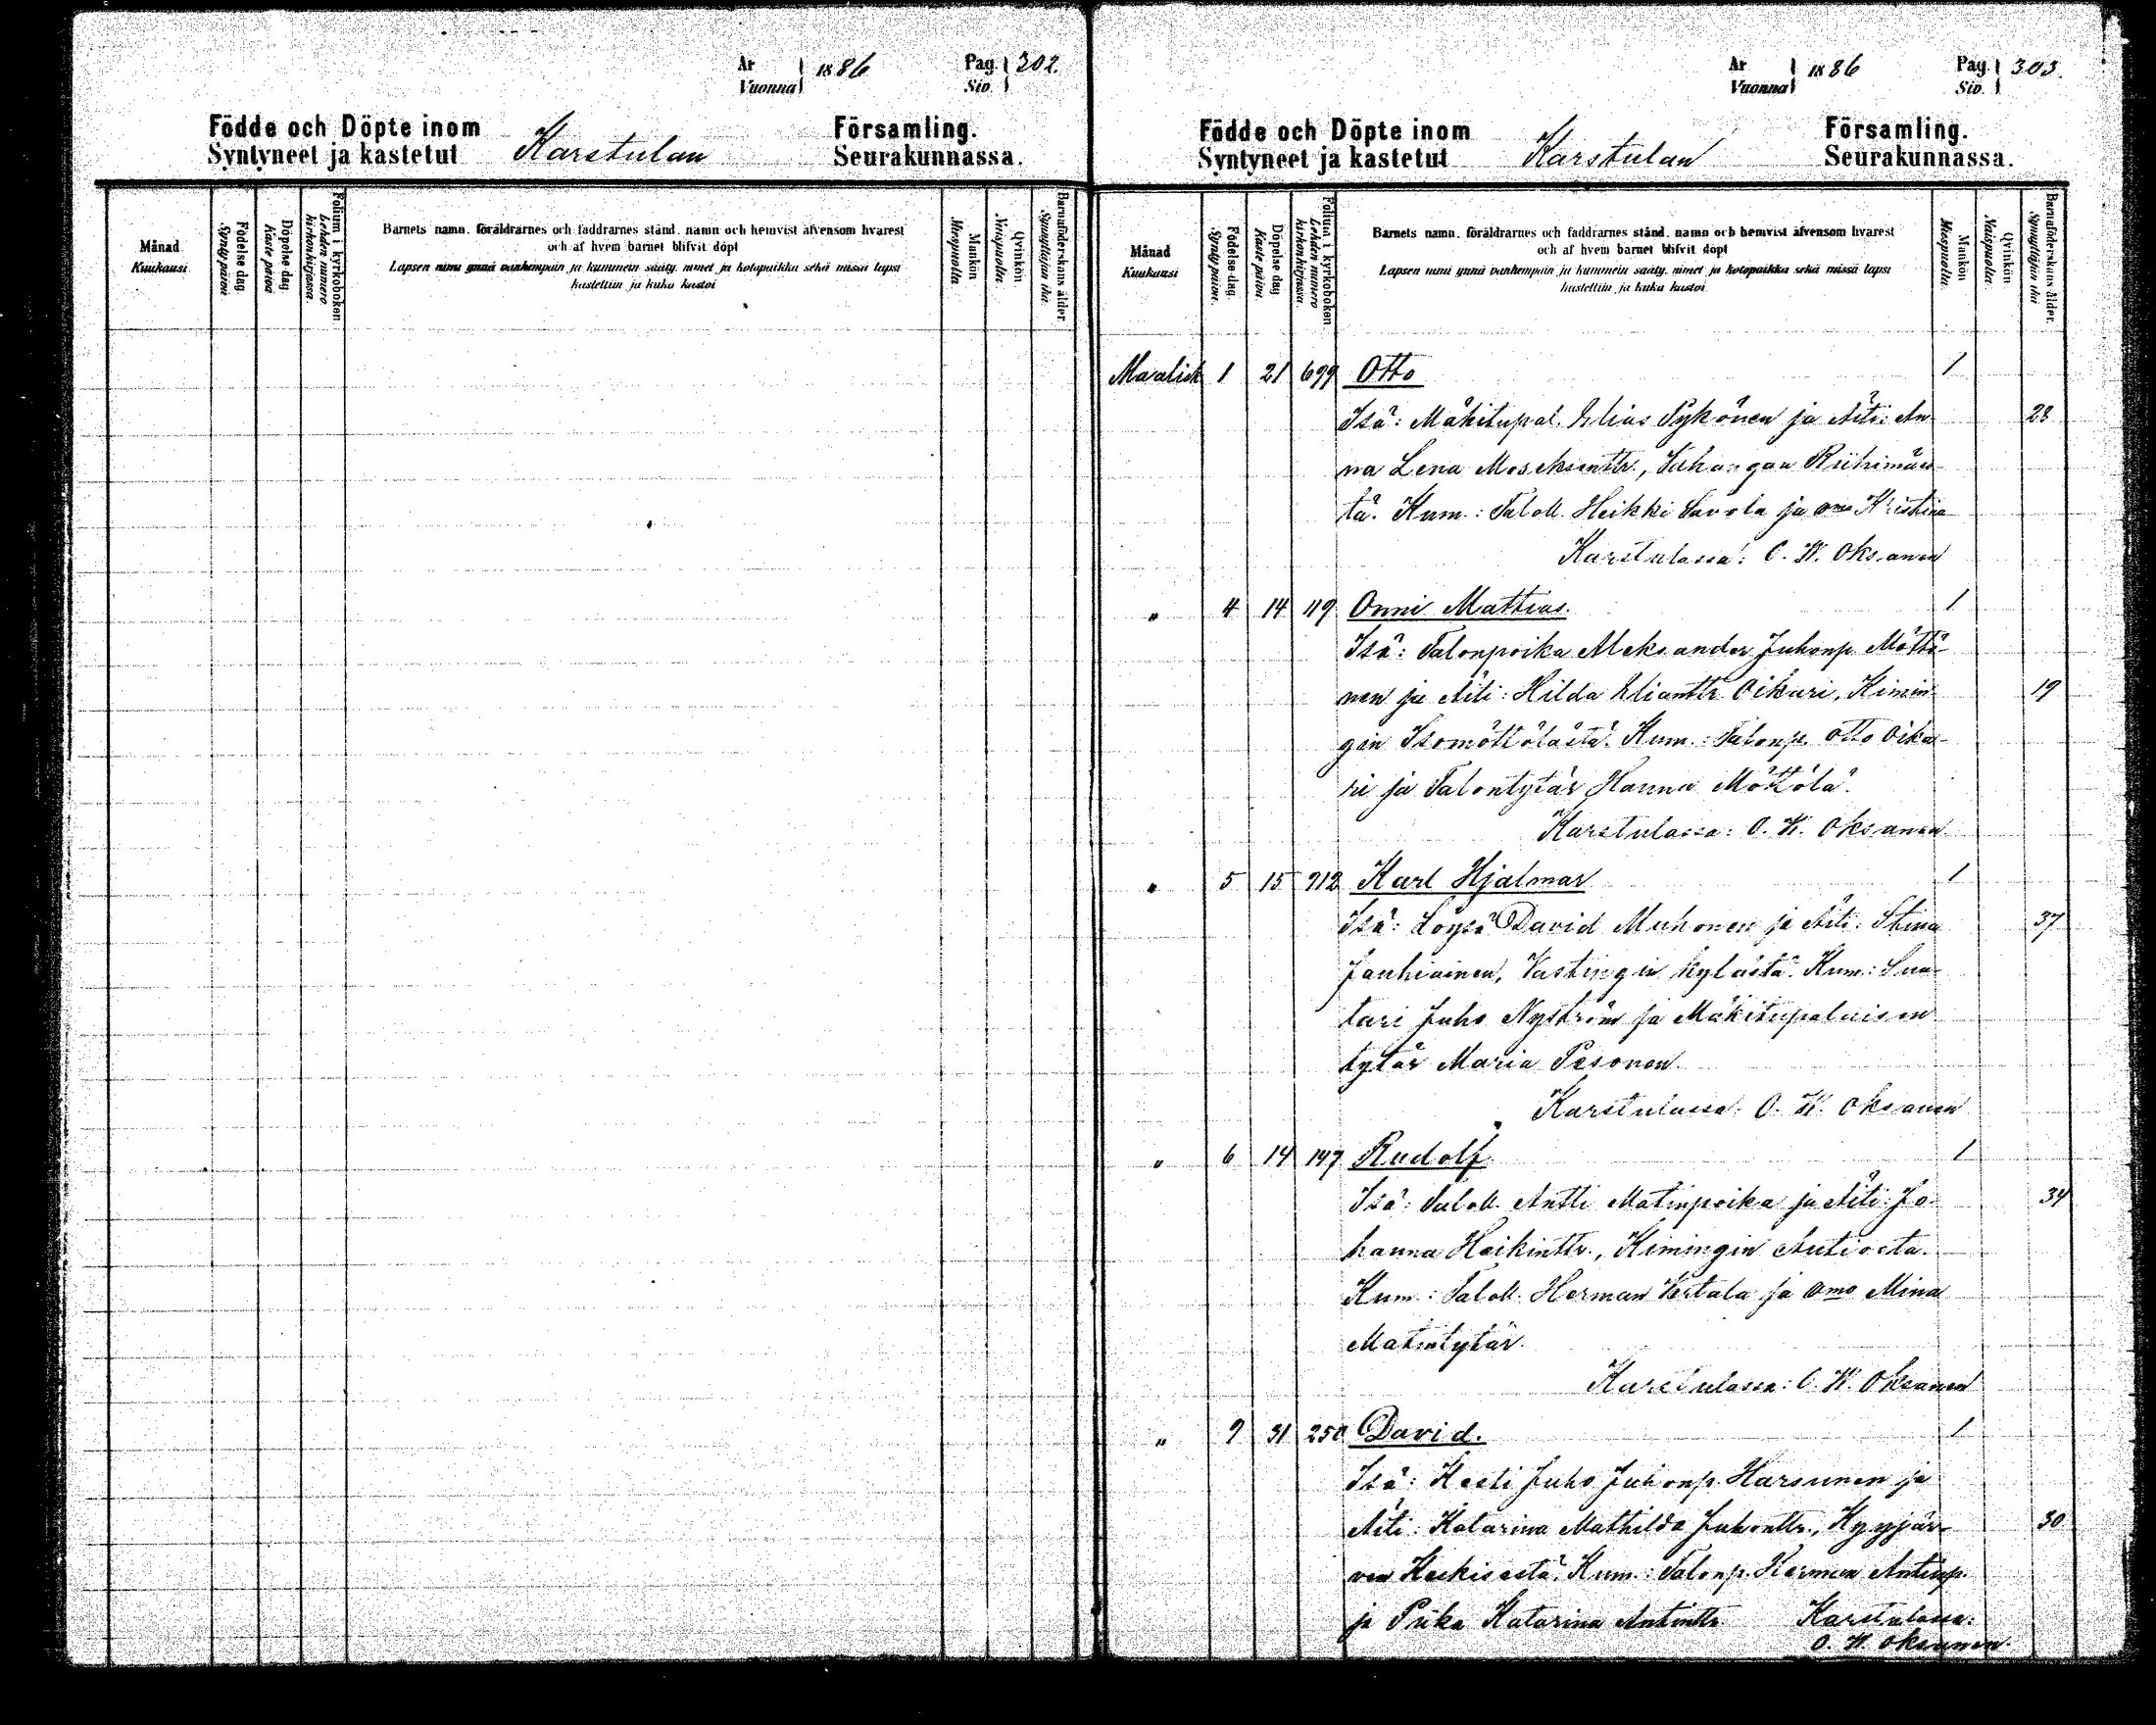 År
Vuonna 1886
Pag.
Siv. 302.
Födde och Döpte inom
Syntyneet ja kastetut Karstulan
Församling.
Seurakunnassa.
Månad
Kuukausi
Födelse dag.
Synty päivä
Döpelse dag.
Kaste päivä
Folium i kyrkoboken
Lehden numero kirkonkirjassa.
Barnets namn, föräldrarnes och faddrarnes stånd, namn och hemvist äfvensom hvarest
och af hvem barnet blifvit döpt
Lapsen nimi ynnä vanhempain ja kummein sääty, nimet ja kotopaikka sekä missä lapsi
kastettiin ja kuka kastoi
Mankön
Miespuolta
Qvinkön
Naispuolta.
Barnaföderskans ålder.
Synnyttäjän ikä.
År
Vuonna 1886
Pag.
Siv. 303.
Födde och Döpte inom
Syntyneet ja kastetut Karstulan
Församling.
Seurakunnassa.
Månad
Kuukausi
Födelse-dag.
Synty päivä.
Döpelse dag
Kaste päivä.
Folium i kyrkoboken
Lehden numero kirkonkirjassa.
Barnets namn, föräldrarnes och faddrarnes stånd, namn och hemvist äfvensom hvarest
och af hvem barnet blifvit döpt
Lapsen nimi ynnä vanhempain ja kummein sääty, nimet ja kotopaikka sekä missä lapsi
kastettiin ja kuka kastoi
Mankön
Miespuolta.
Qvinkön
Naispuolta.
Barnaföderskans ålder.
Synnyttäjän ikä
Maalisk 1 21 699 Otto 1
Isä: Mäkitupal. Elias Pykönen ja Äiti: An- 28
na Lena Moseksenttr., Vahangan Riihimäes-
tä. Kum.: Taloll. Heikki Savola ja Omo Kristina
Karstulassa: O. W. Oksanen
" 4 14 119 Onni Mattias. 1
Isä: Talonpoika Aleksander Juhonp. Möttö-
nen ja Äiti: Hilda Elianttr. Oikari, Kimin- 19
gin Isomöttölästä. Kum.: Talonp. Otto Oika-
ri ja Talontytär Hanna Möttölä.
Karstulassa: O. W. Oksanen
" 5 15 712 Karl Hjalmar 1
Isä: Löysä David Muhonen ja Äiti: Stina 37
Jauhiainen, Vastingin kylästä. Kum.: Suu-
tari Juho Nyström ja Mäkitupalaisen
tytär Maria Pesonen.
Karstulassa: O. W. Oksanen
" 6 14 147 Rudolf 1
Isä: Taloll. Antti Matinpoika ja Äiti: Jo- 34
hanna Heikinttr., Kimingin Autiosta.
Kum.: Taloll. Herman Vertala ja Omo Mina
Matintytär.
Karstulassa: O. W. Oksanen
" 9 31 250 David. 1
Isä: Kesti Juho Juhonp. Harsunen ja
Äiti: Katarina Mathilda Juhonttr., Kyyjär- 30
ven Keskisestä. Kum.: Talonp. Herman Antinp.
ja Piika Katarina Antinttr. Karstulassa:
O. W. Oksanen.